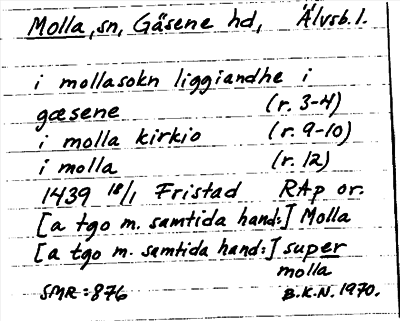 Molla, sn, Gäsene hd, Älvsb. l.
i mollasokn liggiandhe i
gæsene (r. 3-4)
i molla kirkio (r. 9-10)
i molla (r. 12)
1439 18/1 Fristad RAp or.
[a tgo m. samtida hand:] Molla
[a tgo m. samtida hand:] super
molla
SMR: 876 B.K.N. 1970.